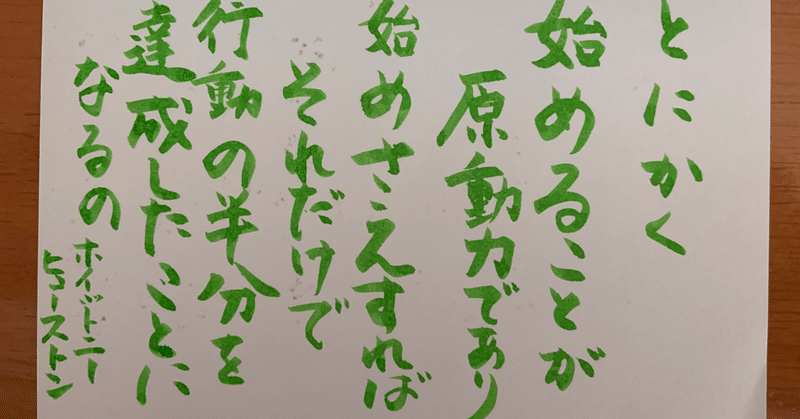 とにかく
始めることが
原動力であり
始めさえすれば
それだけで
行動の半分を
達成したことに
なるの
ホイットニー
ヒューストン